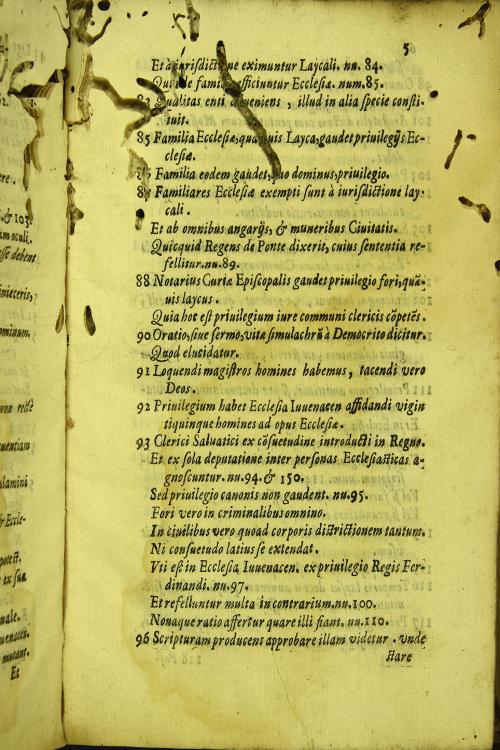 5
Et à iurisdictione eximuntur Laycali. nu. 84.
Qui de fami efficiuntur Ecclesiæ. num.85.
83 Qualitas enti adueniens, illud in alia specie consti-
tuit.
85 Familia Ecclesiæ, quamuis Layca, gaudet priuilegijs Ec-
clesiæ.
Familia eodem gaudet, quo dominus, priuilegio.
Familiares Ecclesiæ exempti sunt à iurisdictione lay-
cali.
Et ab omnibus angarijs, & muneribus Ciuitatis.
Quicquid Regens de Ponte dixerit, cuius sententia re-
fellitur.nu.89.
88 Notarius Curiæ Episcopalis gaudet priuilegio fori, quã-
uis laycus.
Quia hoc est priuilegium iure communi clericis cõpetẽs.
90 Oratio, siue sermo, vitæ simulachrũ à Democrito dicitur.
Quod elucidatur.
91 Loquendi magistros homines habemus, tacendi vero
Deos.
92 Priuilegium habet Ecclesia Iuuenacen affidandi vigin
tiquinque homines ad opus Ecclesiæ.
93 Clerici Saluatici ex cõsuetudine introducti in Regno.
Et ex sola deputatione inter personas Ecclesiasticas a-
gnoscuntur. nu.94. & 150.
Sed priuilegio canonis non gaudent. nu.95.
Fori vero in criminalibus omnino.
In ciuilibus vero quoad corporis districtionem tantum.
Ni consuetudo latius se extendat.
Vti est in Ecclesia Iuuenacen. ex priuilegio Regis Fer-
dinandi. nu.97.
Et refelluntur multa in contrarium.nu.100.
Nouaque ratio affertur quare illi fiant. nu.110.
96 Scripturam producens approbare illam videtur. vnde
stare
& 103.
oculi.
debent
ominum.
non rectè
& Eccle-
potest.
ex sua
mutant.
Et